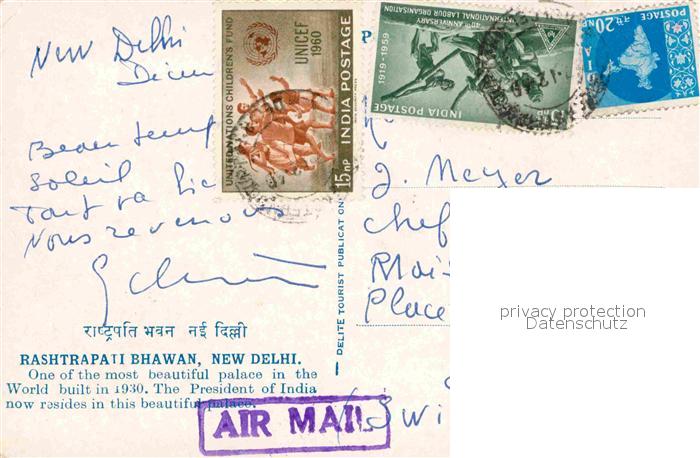 New Delhi
Beau temp
Soleil
Tout va bie
Nous revenons
राष्ट्रपति भवन नई दिल्ली
RASHTRAPATI BHAWAN, NEW DELHI.
One of the most beautiful palace in the
World built in 1930. The President of India
now resides in this beautiful palace.
AIR MAIL
DELITE TOURIST PUBLICAT ON
UNITED NATIONS CHILDREN'S FUND
UNICEF
1960
15 nP INDIA POSTAGE
1919-1959
40TH ANNIVERSARY
INTERNATIONAL LABOUR ORGANISATION
INDIA POSTAGE
15 nP
POSTAGE
20 NP
J. Meyer
Chef
Place
(Swi
privacy protection
Datenschutz